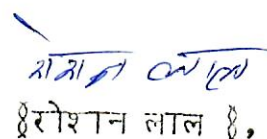 रोशन लाल
(रोशन लाल),